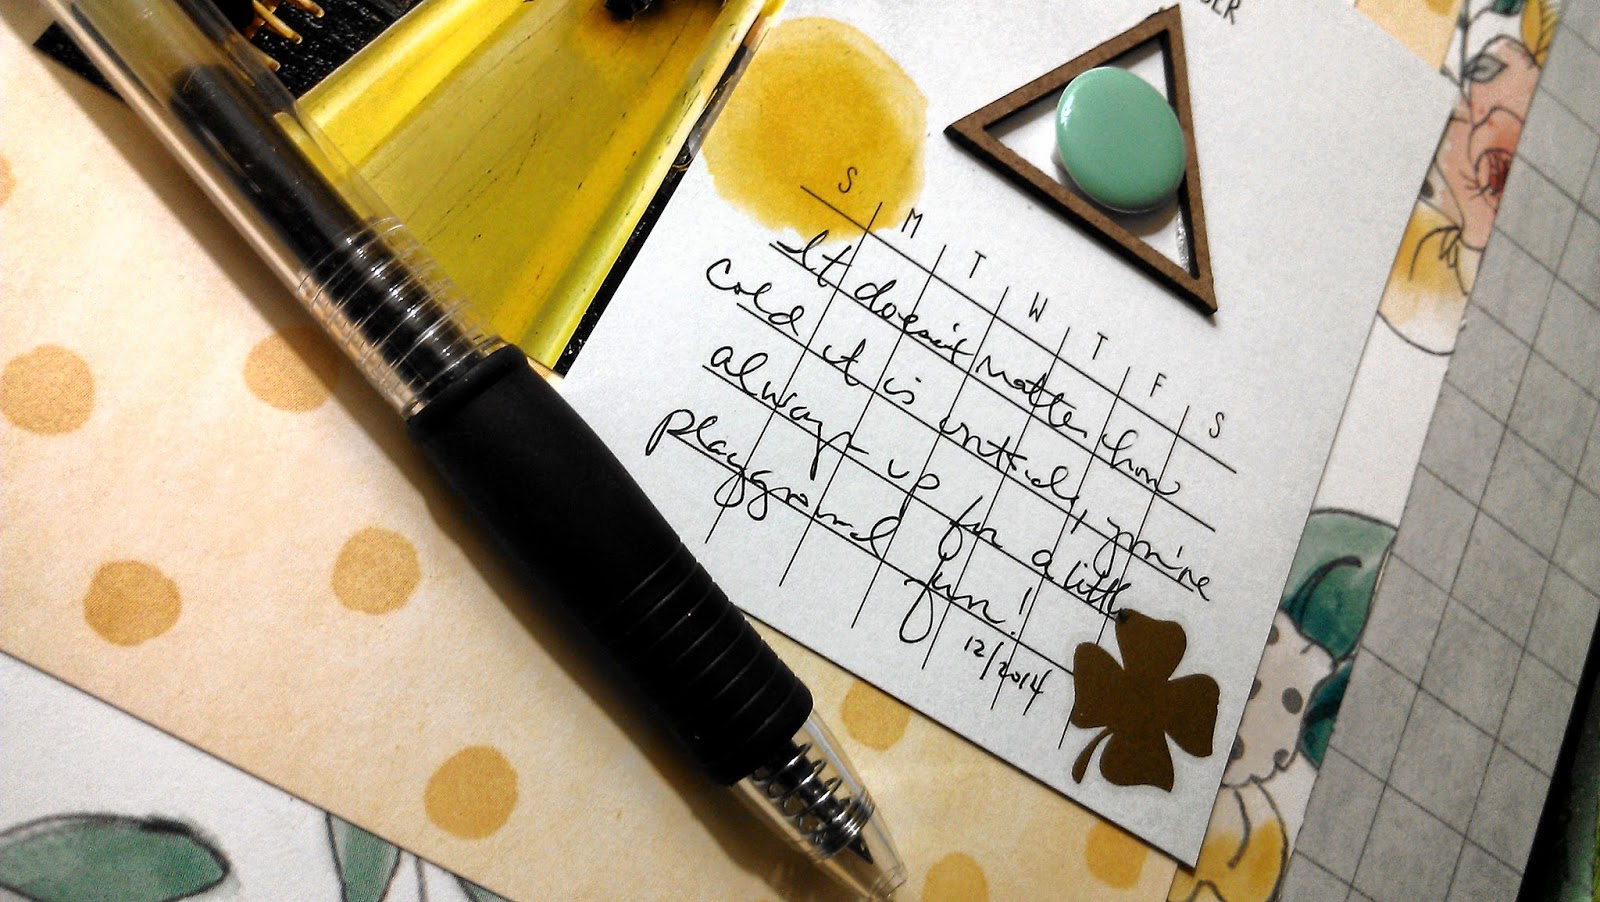 S M T W T F S
It doesn't matter how
cold it is outside, you're
always up for a little
playground fun!
12/2014